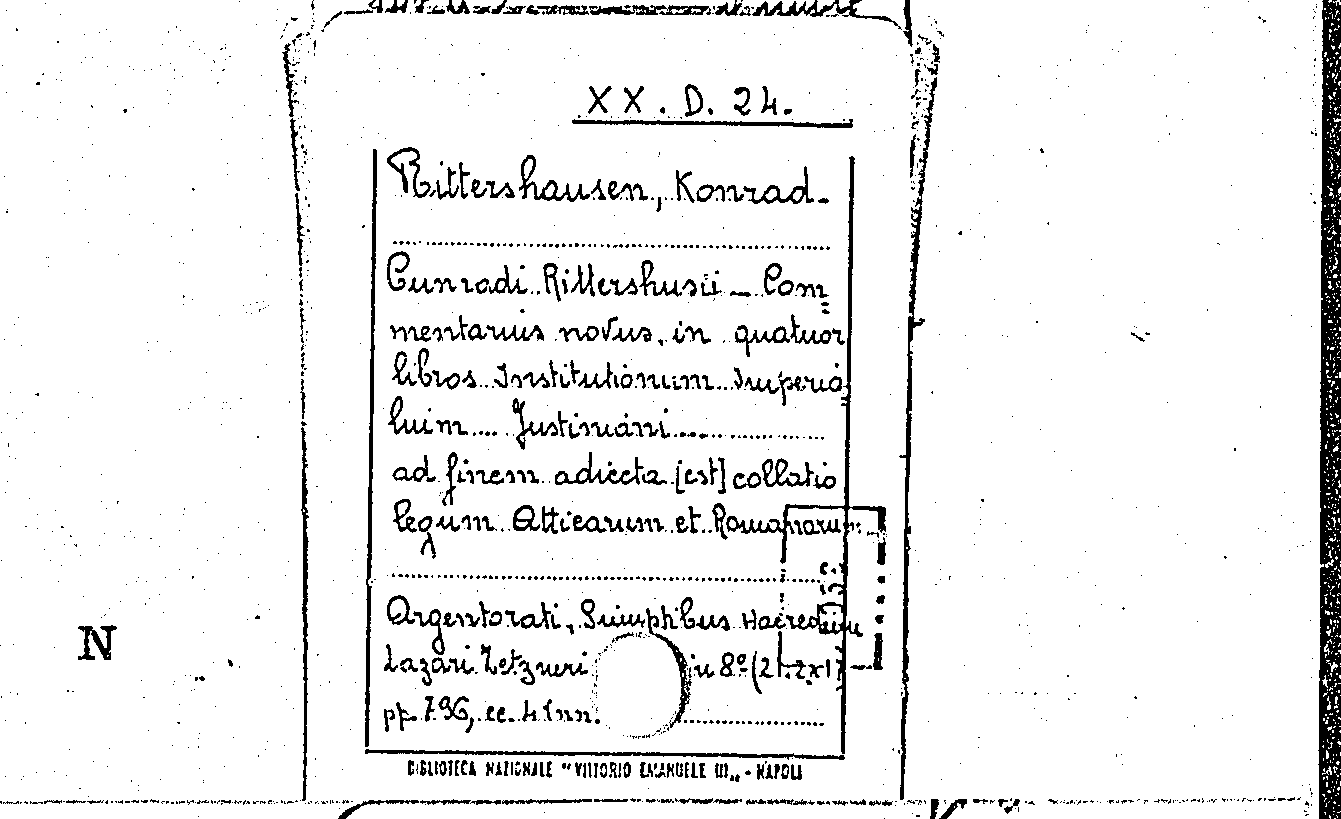 XX. D. 24.
Rittershausen, Konrad.
Cunradi Rittershusii – Com=
mentarius novus, in quatuor
libros Institutionum Imperia=
luim Justiniani
ad finem adiecta [est] collatio
legum Atticarum et Romanarum
Argentorati, Sumptibus Haeredum
Lazari Zetzneri in 8º (21.2x17)
pp. 796, cc. 4 Inn.
BIBLIOTECA NAZIONALE "VITTORIO EMANUELE III„ - NAPOLI
N